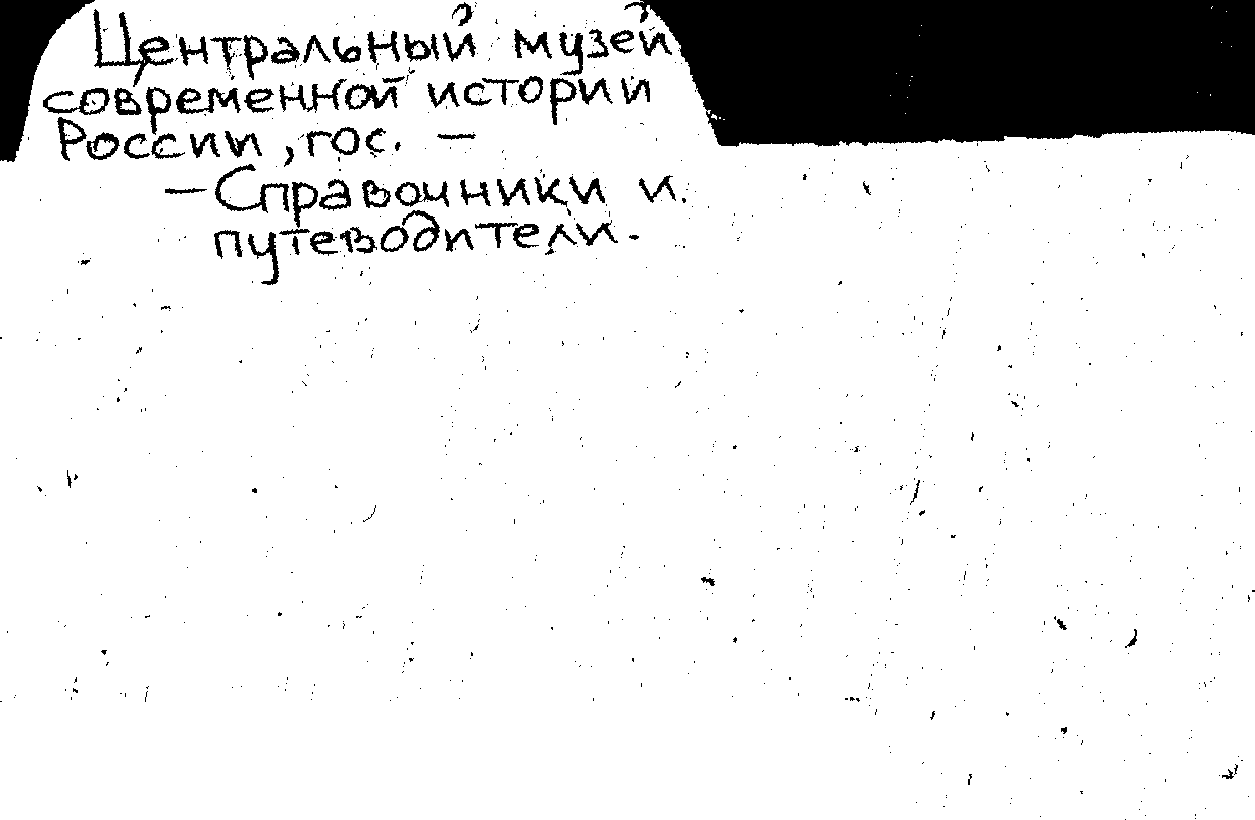 Центральный музей
современной истории
России, гос. —
— Справочники и
путеводители.